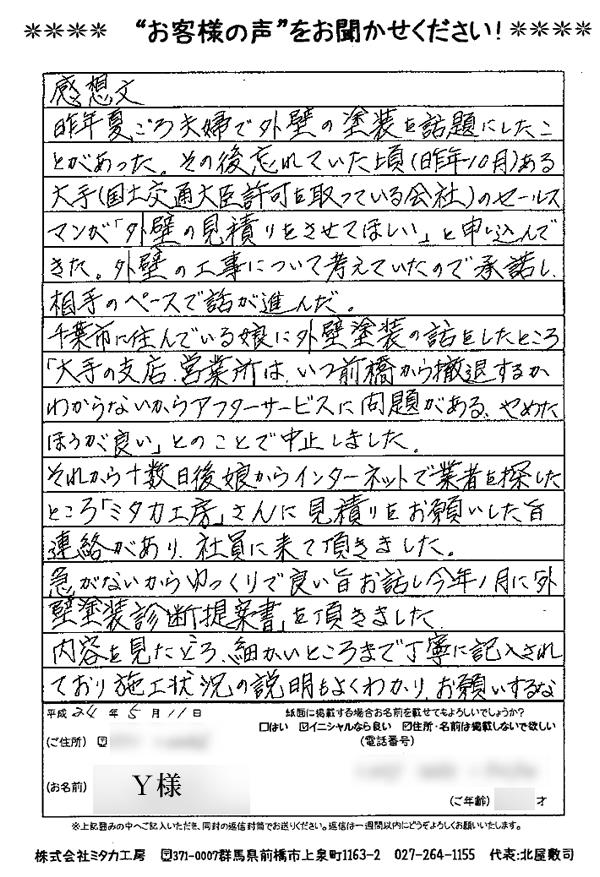 ※※※※ “お客様の声”をお聞かせください！※※※※
感想文
昨年夏ごろ夫婦で外壁の塗装を話題にしたこ
とがあった。その後忘れていた頃(昨年10月)ある
大手(国土交通大臣許可を取っている会社)のセールス
マンが「外壁の見積りをさせてほしい」と申し込んで
きた。外壁の工事について考えていたので承諾し、
相手のペースで話が進んだ。
千葉市に住んでいる娘に外壁塗装の話をしたところ
「大手の支店、営業所は、いつ前橋から撤退するか
わからないからアフターサービスに問題がある、やめた
ほうが良い」とのことで中止しました。
それから十数日後娘からインターネットで業者を探した
ところ「ミタカ工房」さんに見積りをお願いした旨
連絡があり、社員に来て頂きました。
急がないからゆっくりで良い旨お話し今年1月に「外
壁塗装診断提案書」を頂きました。
内容を見たところ、細かいところまで丁寧に記入され
ており施工状況の説明もよくわかり、お願いするな
平成24年5月11日 紙面に掲載する場合お名前を載せてもよろしいでしょうか?
□はい ☑イニシャルなら良い ☑住所・名前は掲載しないで欲しい
(ご住所) 〒 (電話番号)
(お名前) Y様
(ご年齢) 才
※上記登みの中へご記入いただき、同封の返信封筒でお送りください。返信は一週間以内にどうぞよろしくお願いいたします。
株式会社ミタカ工房 〒371-0007群馬県前橋市上泉町1163-2 027-264-1155 代表:北屋敷司